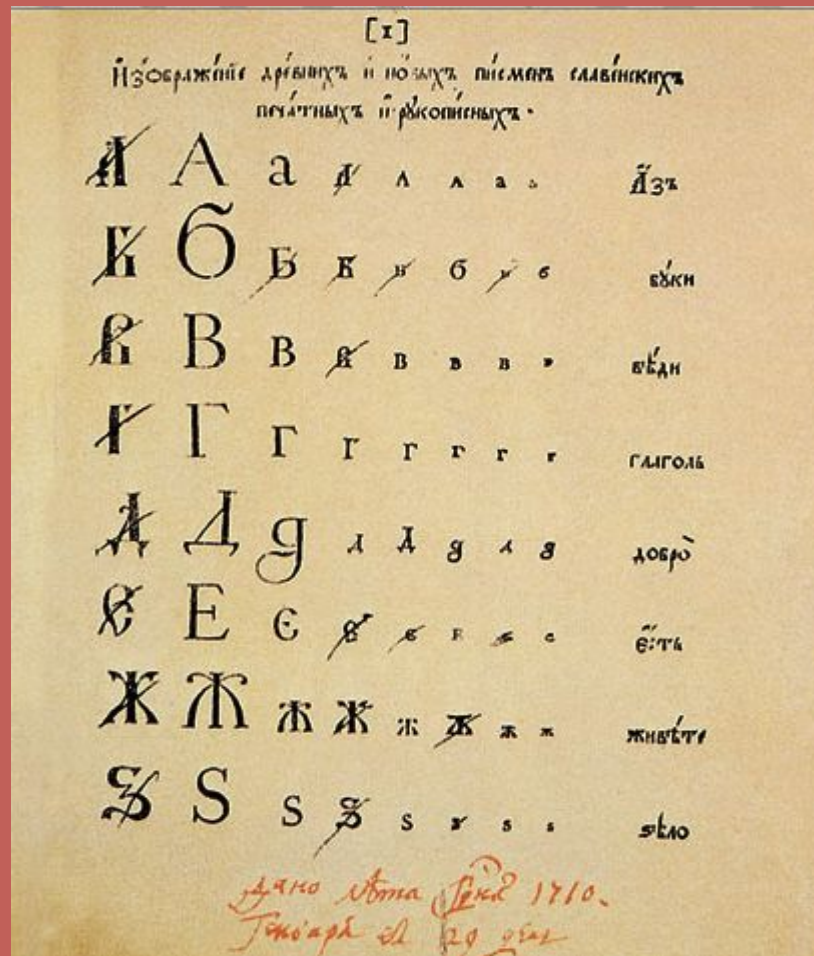 [I]
И҆зѡбраже́нїе дре́внихъ и҆ но́выхъ пи́сменъ славе́нскихъ
печа́тныхъ и҆ рꙋкопи́сныхъ.
А А а А А А а а А҆́зъ
Б Б Б Б Б б Б б бꙋ́ки
В В В В В В В В вѣ́ди
Г Г Г Г Г Г Г Г глаго́ль
Д Д д д Д д д д добро̀
Є Е є є є Е є є є҆́сть
Ж Ж Ж Ж Ж Ж Ж Ж живѣ́те
Ѕ Ѕ Ѕ Ѕ Ѕ Ѕ Ѕ Ѕ ѕѣлѡ̀
дано лѣта 1710.
Генваря 29 дня